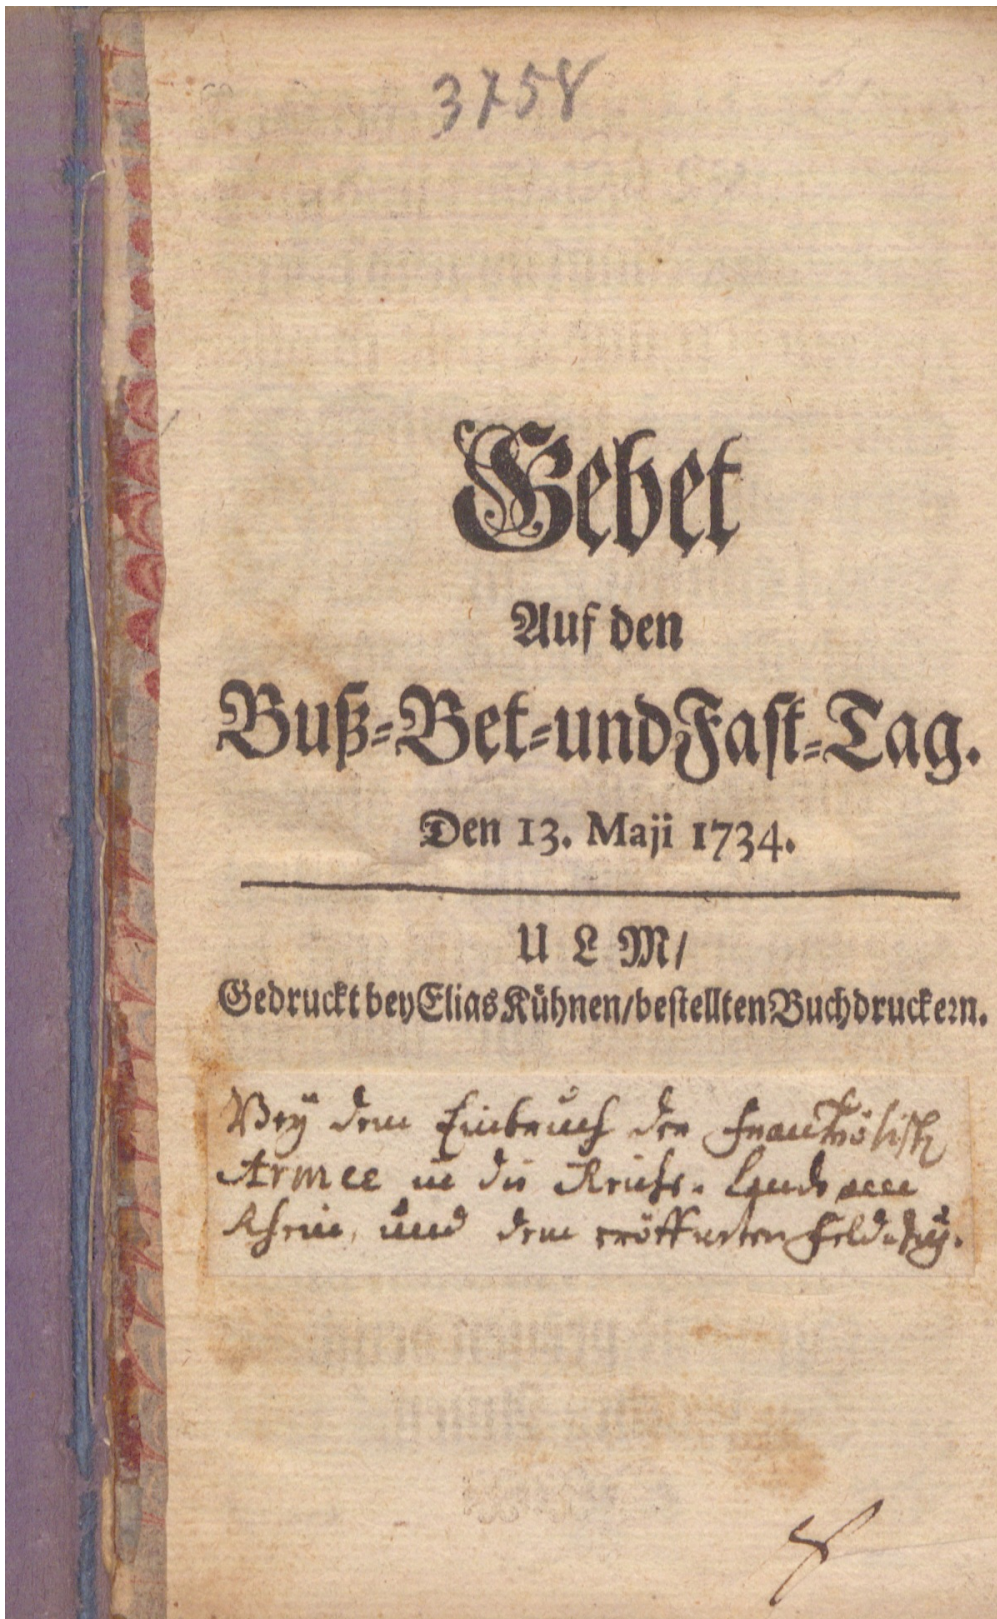 3758
Gebet
Auf den
Buß-Bet-und Fast-Tag.
Den 13. Maji 1734.
ULM/
Gedruckt bey Elias Kühnen/bestellten Buchdruckern.
Bey dem Einbruch der Frantzösisch
Armee in die Reichs-Lande am
Rhein, und dem eröffneten Feldzug.